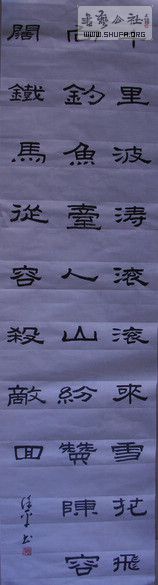 书艺公社
WWW.SHUFA.ORG
千里波濤滚滚來雪花飛
向釣魚臺人山紛贊陳容
闊鐵馬從容殺敵回